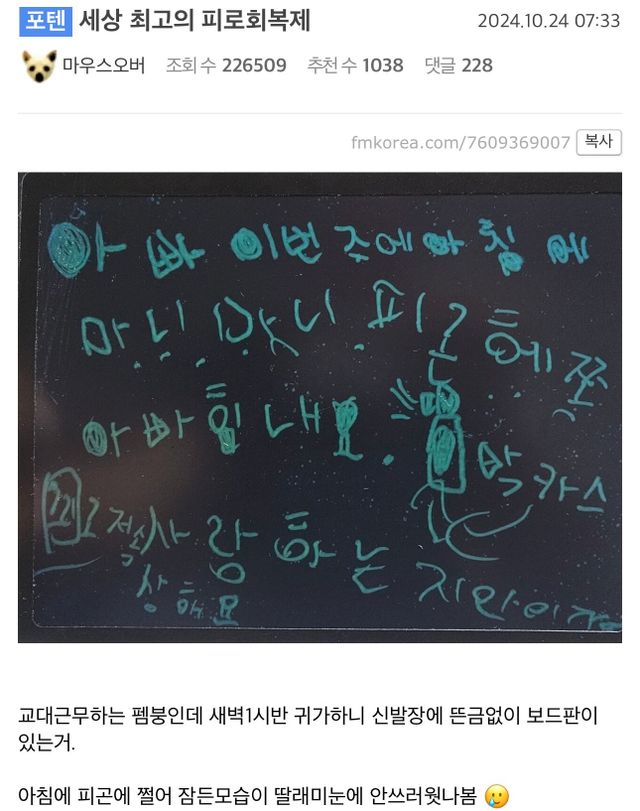 포텐 세상 최고의 피로회복제 2024.10.24 07:33
마우스오버 조회 수 226509 추천 수 1038 댓글 228
fmkorea.com/7609369007 복사
아빠 이번 주에 아침에
마니 피로 헤쪼
아빠 힘내요.
박카스
사랑하는 지안이가
상해요
교대근무하는 펨붕인데 새벽1시반 귀가하니 신발장에 뜬금없이 보드판이
있는거.
아침에 피곤에 쩔어 잠든모습이 딸래미눈에 안쓰러웟나봄